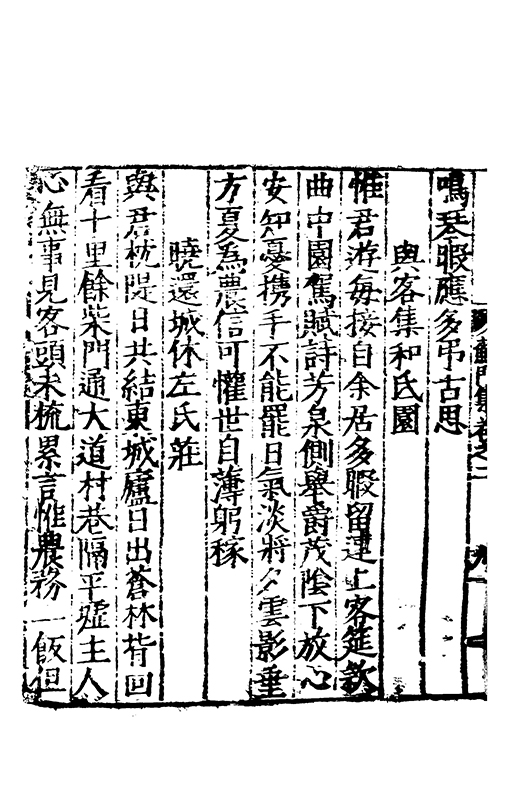 蘇門集卷之二
鳴琴暇應多弔古思
與客集和氏園
惟君遊每接自余居多暇留連上客筵欵
曲中園駕賦詩芳泉側舉爵茂陰下放心
安知憂携手不能罷日氣淡將夕雲影垂
方夏為農信可懽世自薄躬稼
曉還城休左氏莊
與君枕隄日共結東城廬日出蒼林背回
看十里餘柴門通大道村巷隔平墟主人
心無事見客頭未梳累言惟農務一飯但